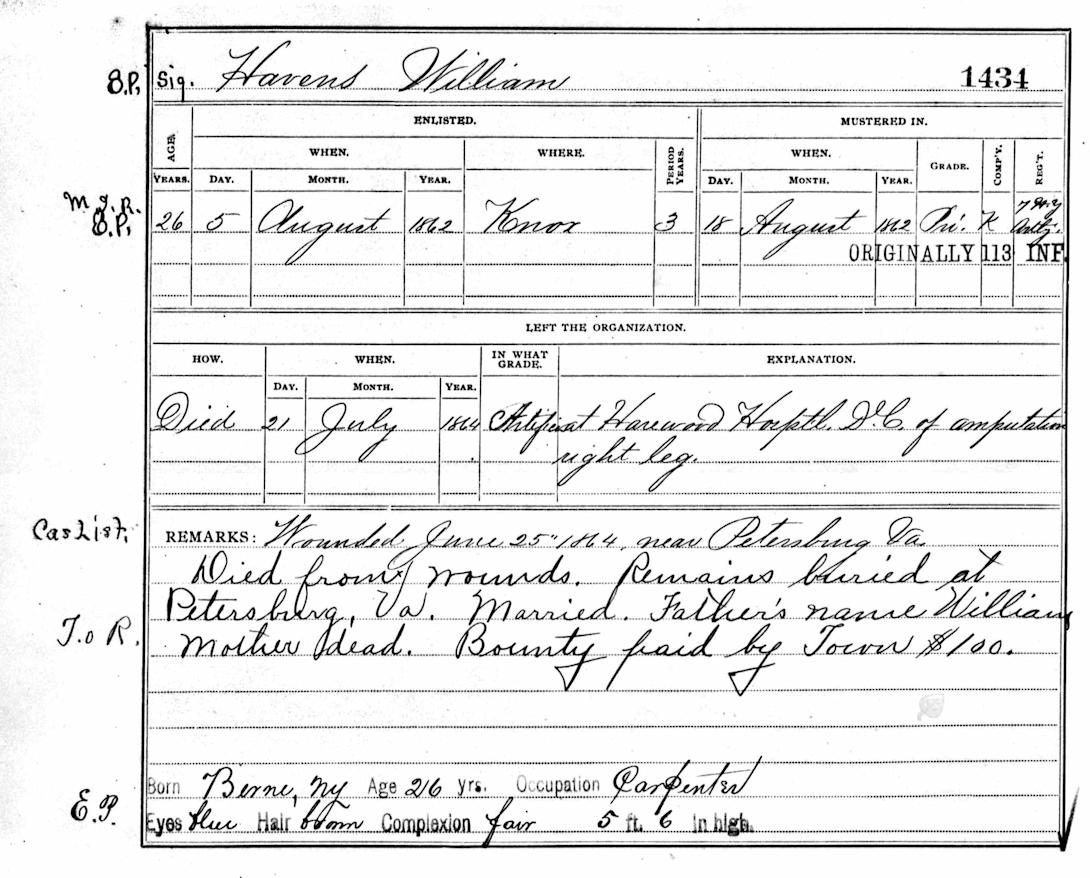 E.P. Sig. Havens William 1434
ENLISTED. MUSTERED IN.
AGE. WHEN. WHERE. PERIOD YEARS. WHEN. GRADE. COMP'Y. REG'T.
YEARS. DAY. MONTH. YEAR. DAY. MONTH. YEAR.
M.I.R.
E.P. 26 5 August 1862 Knox 3 18 August 1862 Pri. K 7 H.Y Artly.
ORIGINALLY 113 INF.
LEFT THE ORGANIZATION.
HOW. WHEN. IN WHAT GRADE. EXPLANATION.
DAY. MONTH. YEAR.
Died 21 July 1864 Artific at Harewood Hosptl. D.C. of amputation
right leg.
Cas List. REMARKS: Wounded June 25" 1864, near Petersburg Va.
Died from wounds. Remains buried at
Petersburg, Va. Married. Father's name William
T. o R. Mother dead. Bounty paid by Town $100.
Born Berne, NY Age 26 yrs. Occupation Carpenter
E.P. Eyes blue Hair brown Complexion fair 5 ft. 6 in high.